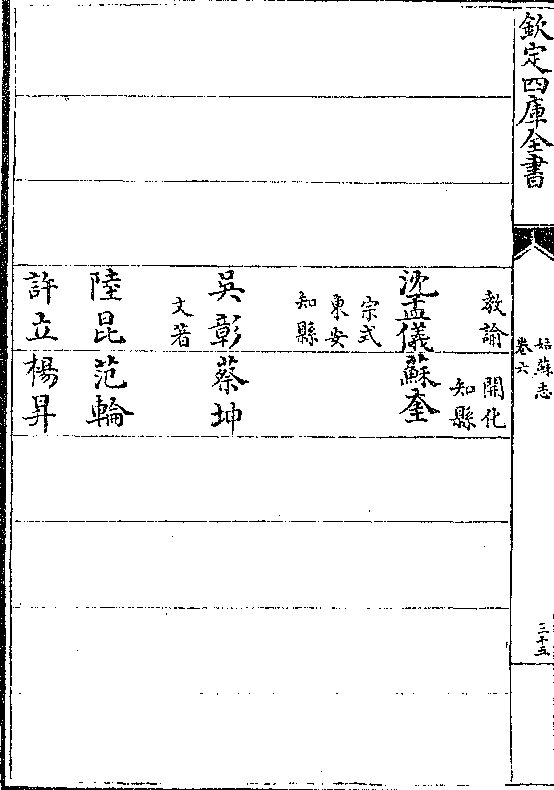 欽定四庫全書
姑蘇志
卷六
三十五
教諭
開化
知縣
沈孟儀
蘇奎
宗式
東安
知縣
吳彰
蔡坤
文著
陸昆
范輪
許立
楊昇